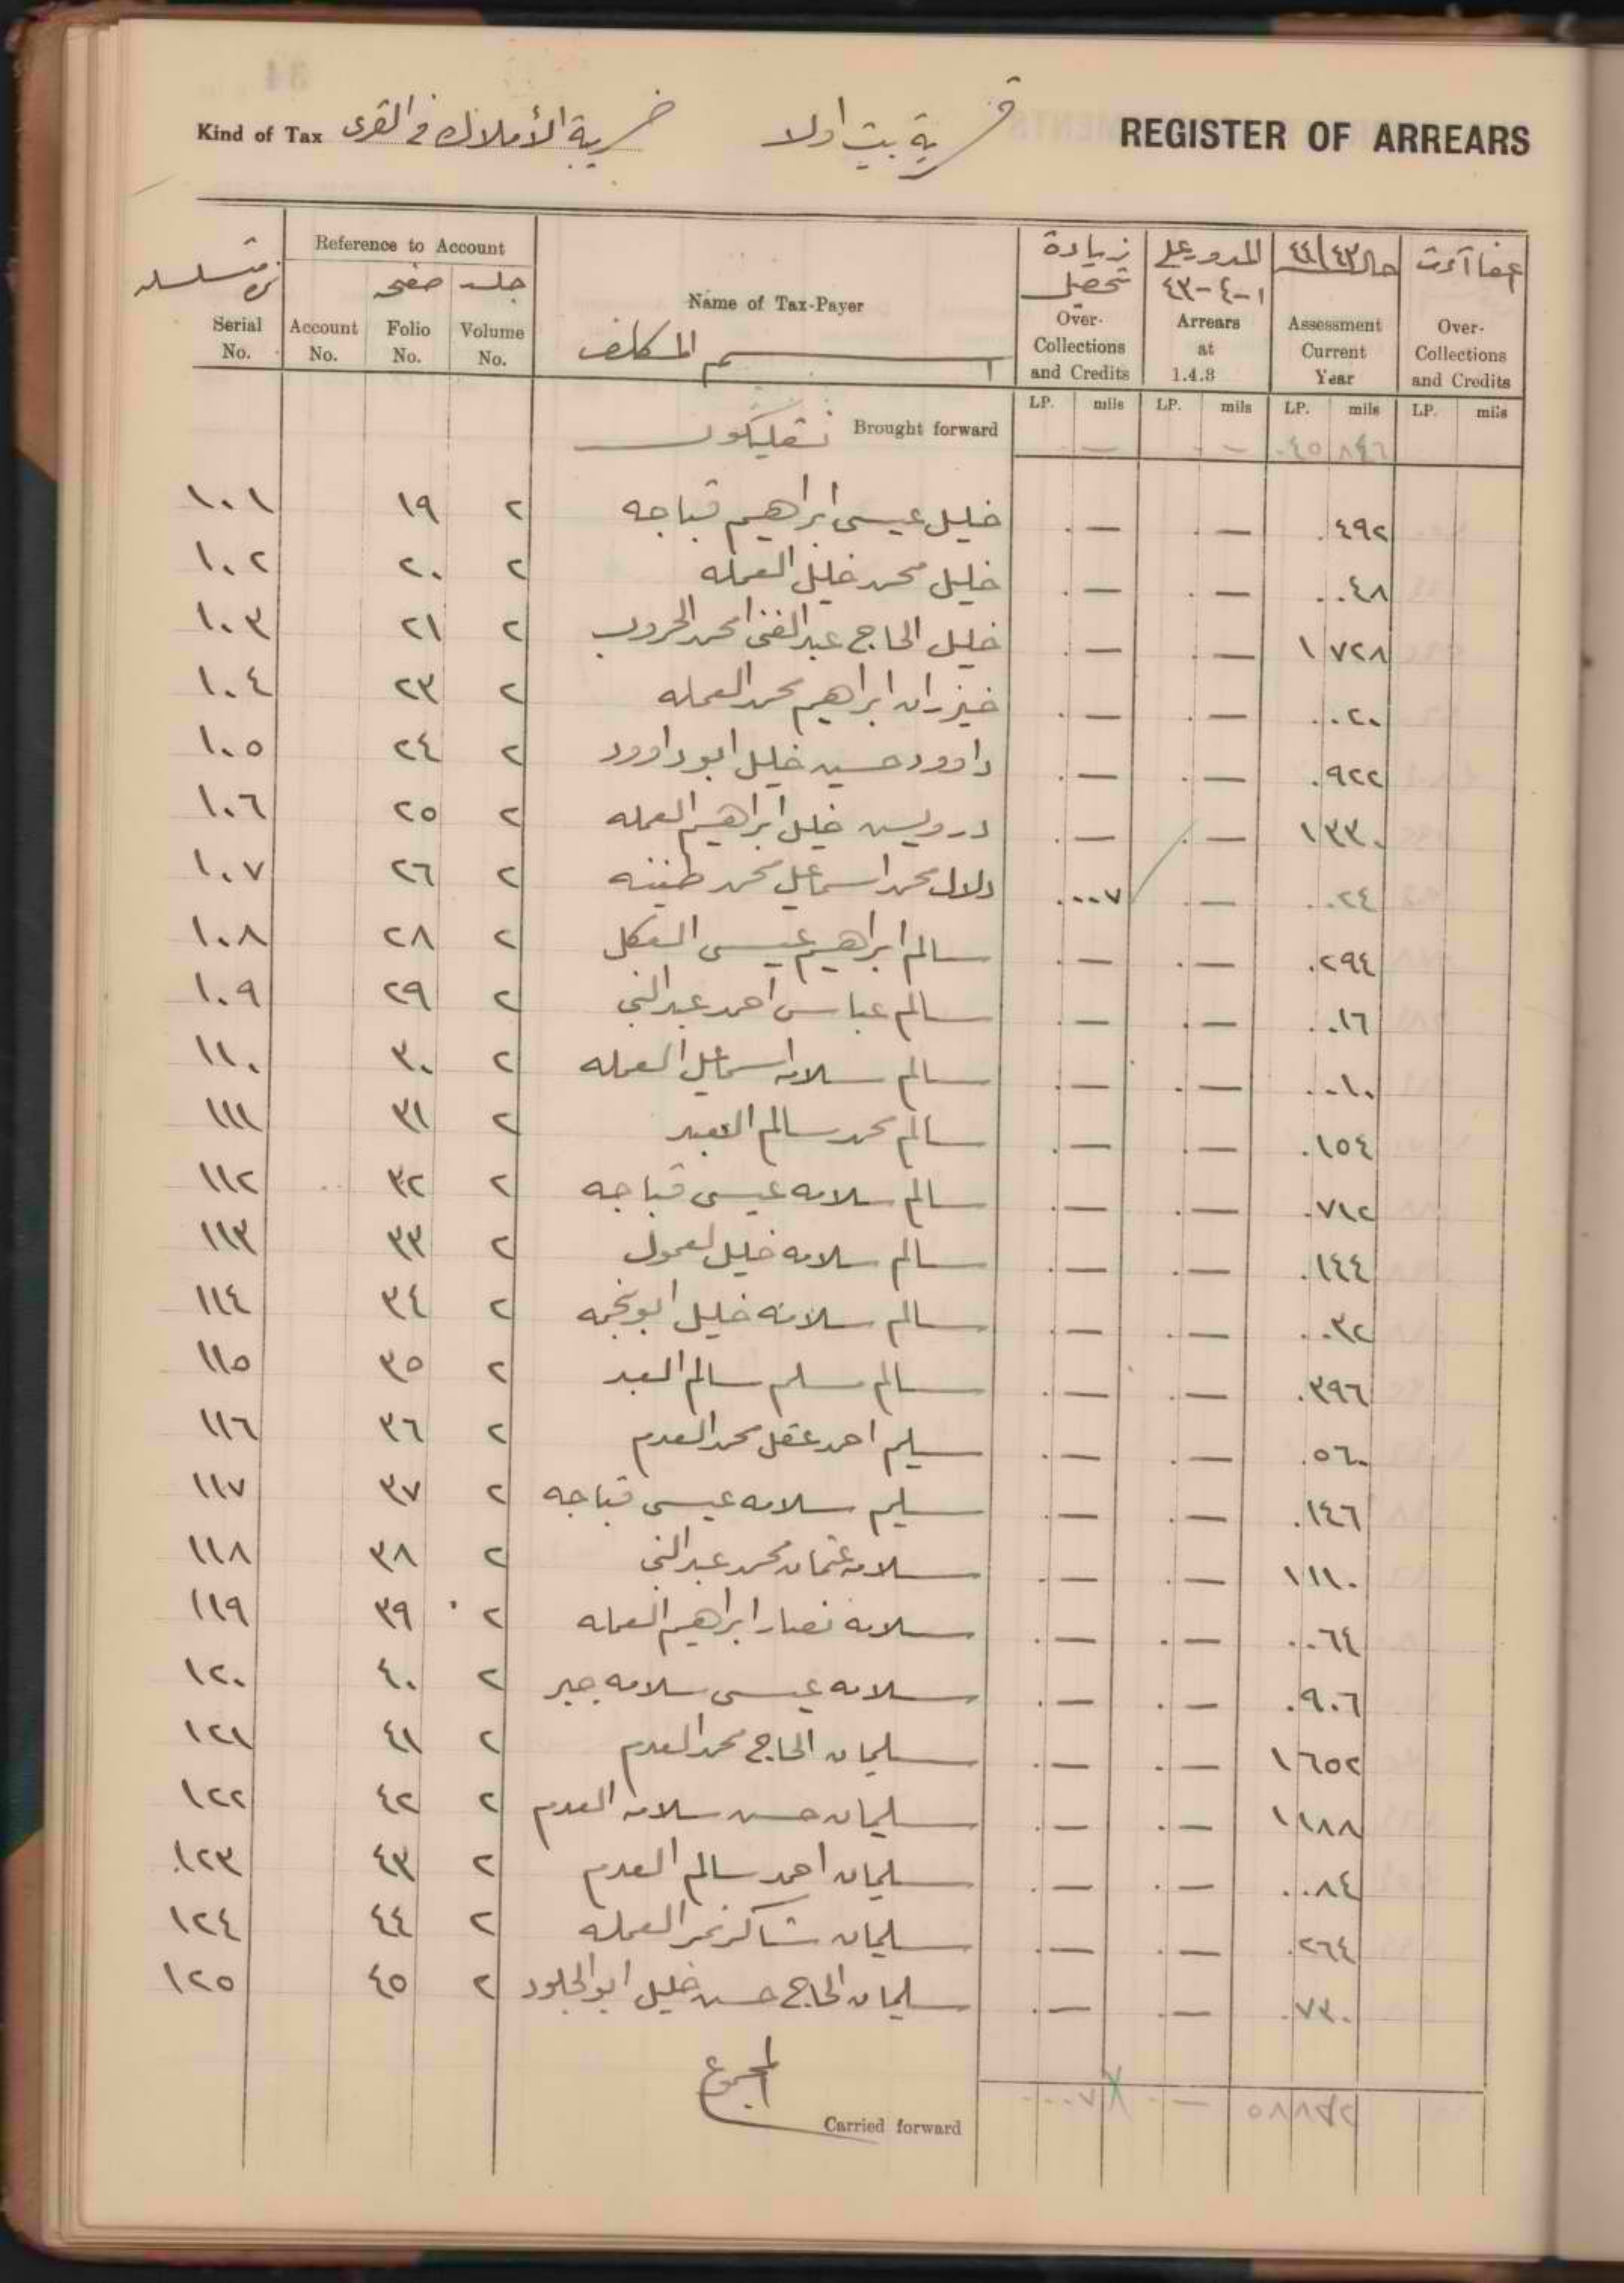 Kind of Tax ضريبة الأملاك في القرى قرية بيت اولا REGISTER OF ARREARS
Reference to Account
زيادة تحصيل المدور على ١-٤-٤٣ حال ٤٤/٤٣
جلد صفحه
Name of Tax-Payer
اسم المكلف
Serial No. Account No. Folio No. Volume No. Over-Collections and Credits Arrears at 1.4.3 Assessment Current Year Over-Collections and Credits
LP. mils LP. mils LP. mils LP. mils
Brought forward — — ٤٥ ٨٤٦
١٠١ ١٩ ٢ خليل عيسى ابراهيم قباجه — — ٤٩٢
١٠٢ ٢٠ ٢ خليل محمد خليل العمله — — ٠٤٨
١٠٣ ٢١ ٢ خليل الحاج عبد الغني محمد الحروب — — ١ ٧٢٨
١٠٤ ٢٣ ٢ خيزران ابراهيم محمد العمله — — ٠٢٠
١٠٥ ٢٤ ٢ داوود حسين خليل ابو داوود — — ٩٢٢
١٠٦ ٢٥ ٢ درويش خليل ابراهيم العمله — — ١ ٣٣٠
١٠٧ ٢٦ ٢ دلال محمد اسماعيل محمد طنينه ٠٠٧ — ٠٢٤
١٠٨ ٢٨ ٢ سالم ابراهيم عيسى — — ٢٩٤
١٠٩ ٢٩ ٢ سالم عباس احمد عبد النبي — — ٠١٦
١١٠ ٣٠ ٢ سالم سلامه اسماعيل العمله — — ٠١٠
١١١ ٣١ ٢ سالم محمد سالم العبد — — ١٥٤
١١٢ ٣٢ ٢ سالم سلامه عيسى قباجه — — ٧١٢
١١٣ ٣٣ ٢ سالم سلامه خليل — — ١٤٤
١١٤ ٣٤ ٢ سالم سلامه خليل ابو نجمه — — ٠٣٢
١١٥ ٣٥ ٢ سالم مسلم سالم العبد — — ٣٩٦
١١٦ ٣٦ ٢ سليم احمد عقل محمد العدم — — ٥٦٠
١١٧ ٣٧ ٢ سليم سلامه عيسى قباجه — — ١٤٦
١١٨ ٣٨ ٢ سلامه عثمان محمد عبد النبي — — ١ ١١٠
١١٩ ٣٩ ٢ سلامه نصار ابراهيم العمله — — ٠٦٤
١٢٠ ٤٠ ٢ سلامه عيسى سلامه جبر — — ٩٠٦
١٢١ ٤١ ٢ سليمان الحاج محمد العدم — — ١ ٦٥٢
١٢٢ ٤٢ ٢ سليمان حسن سلامه العدم — — ١ ١٨٨
١٢٣ ٤٣ ٢ سليمان احمد سالم العدم — — ٠٨٤
١٢٤ ٤٤ ٢ سليمان شاكر نمر العمله — — ٢٦٤
١٢٥ ٤٥ ٢ سليمان الحاج حسن خليل ابو الجلود — — ٧٣٠
المجموع
Carried forward